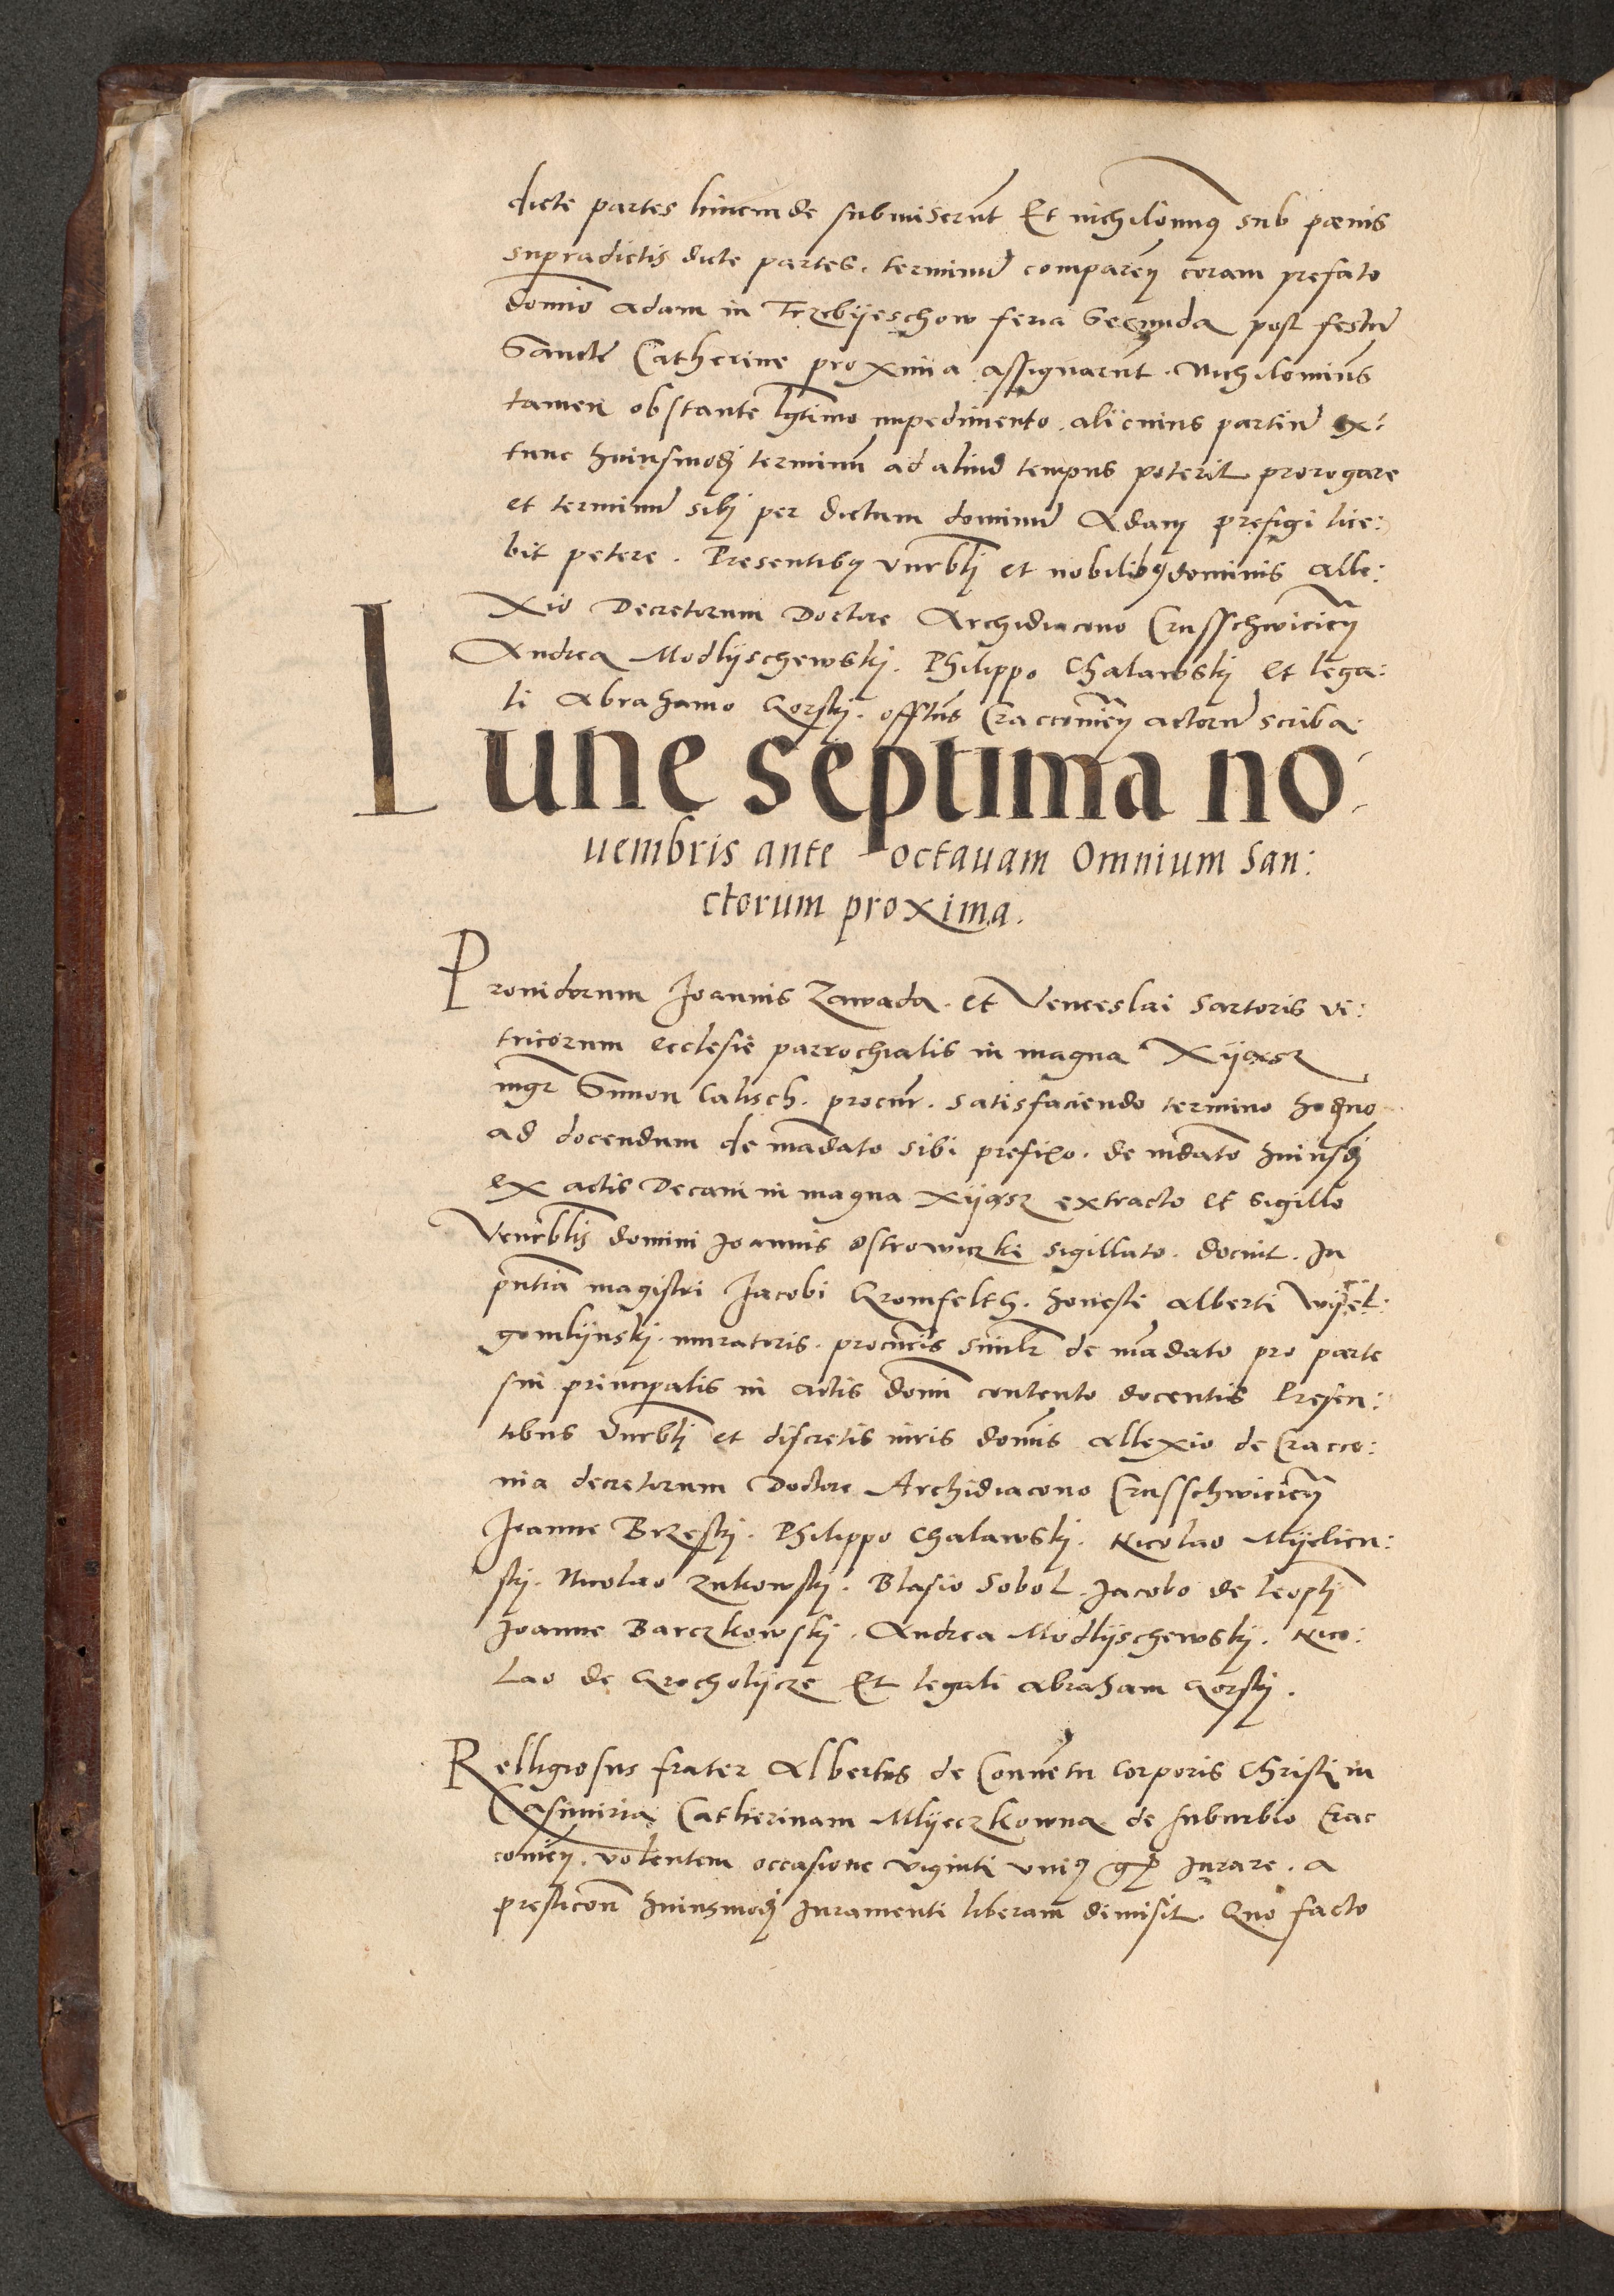 dicte partes hincinde submiserūt Et nichilominꝰ sub pœnis
supradictis dicte partes. terminū comparenꝭ coram prefato
domīo Adam in Trzebÿeschow feria Secunda post festū
Sancte Catherine proxima assignarūt. Nichilominus
tamen obstante lgtimo impedimento. alicuius partiū ex:
tunc huiusmodj terminū ad aliud tempus poterit prorogare
et terminū sibj per dictum dominū Adam prefigi lice:
bit petere. Presentibꝰ vnrblj et nobilibꝰ dominis Alle:
xio Decretorum Doctore Archidiacono Crusschwicienꝭ
Andrea Modlÿschewskj. Philippo Chalawskj et lega:
li Abrahamo Gorskj. offtus Cracouienꝭ actorū scriba.
Lune septima no:
uembris ante octauam Omnium San:
ctorum proxima.
Prouidorum Joannis Zawada. et Venceslai Sartoris vi:
tricorum ecclesie parrochialis in magna Xÿasz
mgr Simon Calisch. procur. satisfaciendo termino hodno
ad docendum de mādato sibi prefixo. de mdato huiusdj
ex actis Decani in magna xÿasz extracto et sigillo
Venerblis domini Joannis Ostrowiczki sigillato. docuit. In
pntia magistri Jacobi Gromfelth. honesti Alberti Wÿel:
gomlÿnskj. muratoris. procuris similr de mādato pro parte
sui principalis in actis domi contento docentis Presen:
tibus Vnrblj et discretis viris domis Allexio de Cracco:
uia decretorum Doctore Archidiacono Crusschwicienꝭ
Joanne Brzeskj. Philippo Chalawskj. Nicolao Mÿelien:
skj. Nicolao Zukowskj. Blasio Sobol. Jacobo de leoplj
Joanne Barczkowskj. Andrea Modlÿschewskj. Nico:
lao de Grocholÿcze Et legali Abraham Gorskj.
Relligiosus frater Albertus de Conuētu Corporis Christi in
Casimiria Catherinam Mlÿeczkowna de suburbio Crac
couienꝭ. volentem occasione viginti vniꝰ gꝭ Jurare. a
presticonē huiusmodj Juramenti liberam dimisit. Quo facto